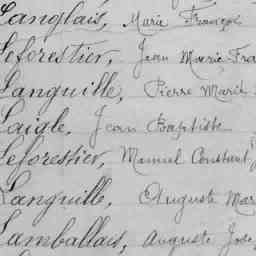 Langlais, Marie François
Leforestier, Jean Marie Fra
Languille, Pierre Marie
Laigle, Jean Baptiste
Leforestier, Manuel Constant
Languille, Auguste Mar
Lamballais, Auguste Jose